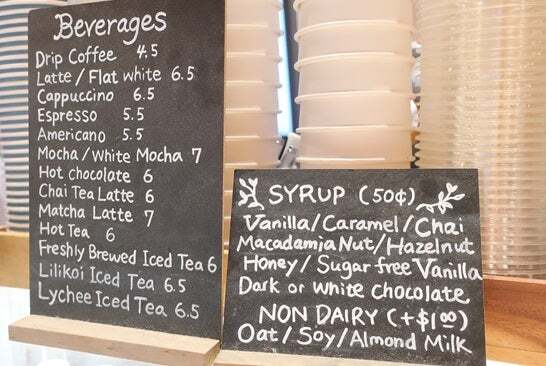 Beverages
Drip Coffee 4.5
Latte / Flat white 6.5
Cappuccino 6.5
Espresso 5.5
Americano 5.5
Mocha / White Mocha 7
Hot chocolate 6
Chai Tea Latte 6
Matcha Latte 7
Hot Tea 6
Freshly Brewed Iced Tea 6
Lilikoi Iced Tea 6.5
Lychee Iced Tea 6.5
SYRUP (50¢)
Vanilla / Caramel / Chai
Macadamia Nut / Hazelnut
Honey / Sugar free Vanilla
Dark or White Chocolate
NON DAIRY (+$1.00)
Oat / Soy / Almond Milk